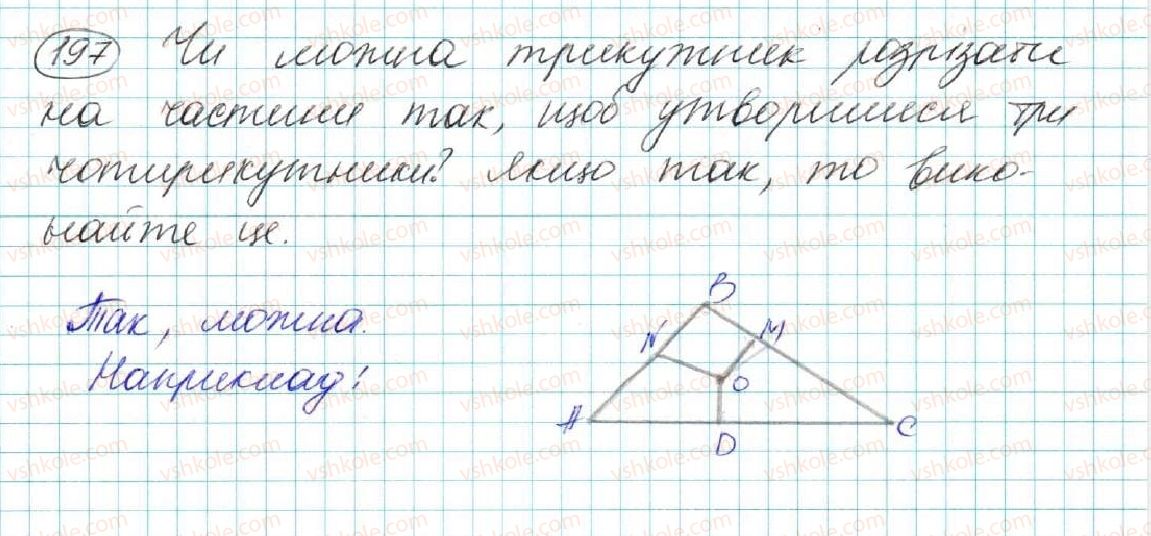 197 Чи можна трикутник розрізати
на частини так, щоб утворилися три
чотирикутники? Якщо так, то вико-
найте це.
Так, можна.
Наприклад:
B
N
M
O
A
D
C
vshkole.com